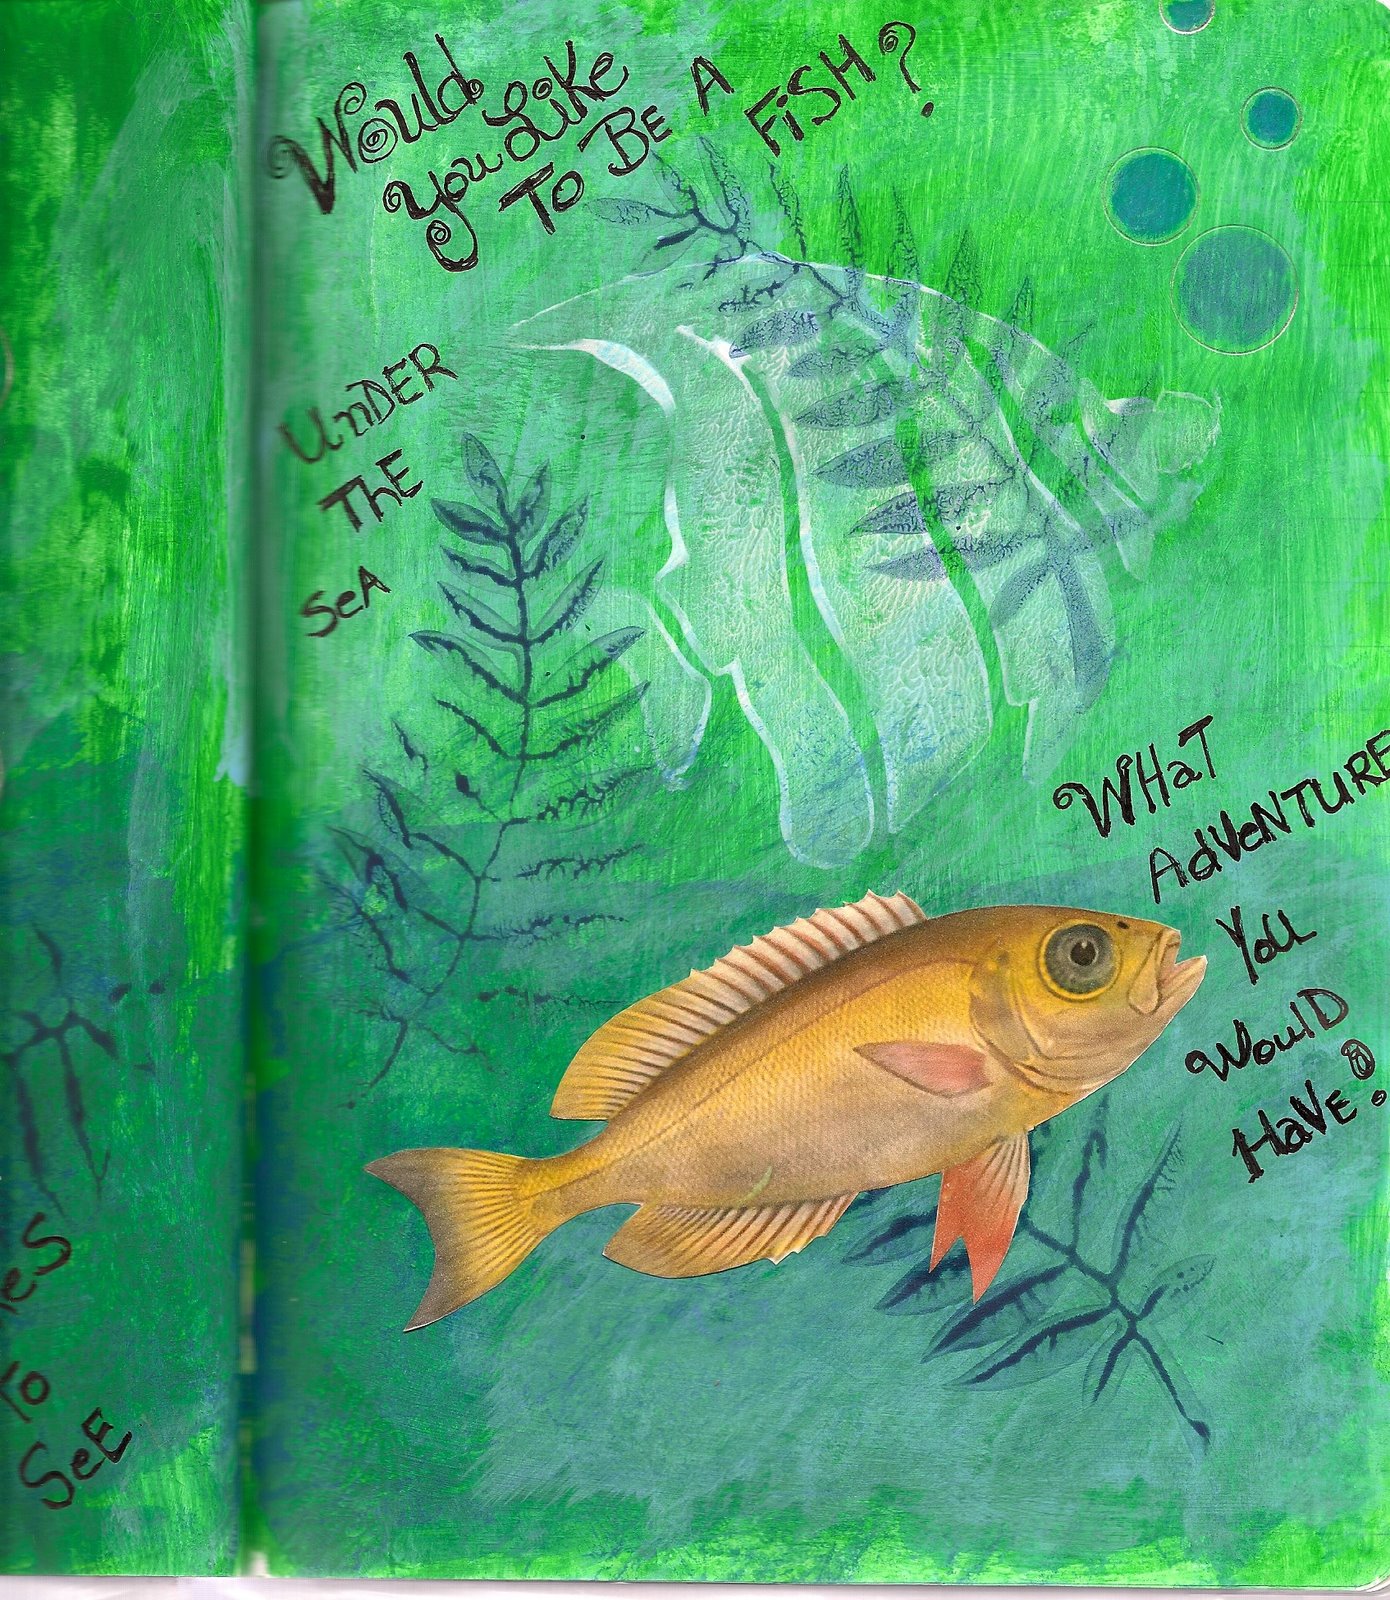 Would
You Like
To BE A
FiSH?
UnDER
ThE
SeA
WHaT
AdVeNTURE
You
WoulD
HaVE?
To
SeE